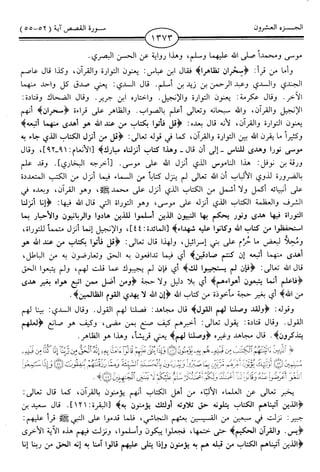 الجـــزء العشرون
١٣٧٣
سورة القصص آية (٥٢-٥٥)
موسى ومحمداً صلى الله عليهما وسلم، وهذا رواية عن الحسن البصري.
وأما من قرأ: ﴿سِحْران تظاهرا﴾ فقال ابن عباس: يعنون التوارة والقرآن، وكذا قال عاصم
الجندي والسدي وعبد الرحمن بن زيد بن أسلم. قال السدي: يعني صدق كل واحد منهما
الآخر. وقال عكرمة: يعنون التوارة والإنجيل. واختاره ابن جرير. وقال الضحاك وقتادة:
الإنجيل والقرآن، والله سبحانه وتعالى أعلم بالصواب. والظاهر على قراءة ﴿سحران﴾ أنهم
يعنون التوارة والقرآن، لأنه قال بعده: ﴿قل فأتوا بكتاب من عند الله هو أهدى منهما أتبعه﴾
وكثيراً ما يقرن الله بين التوارة والقرآن، كما في قوله تعالى: ﴿قل من أنزل الكتاب الذي جاء به
موسى نورا وهدى للناس - إلى أن قال - وهذا كتاب أنزلناه مبارك﴾ [الأنعام: ٩١-٩٢]، وقال
ورقة بن نوفل: هذا الناموس الذي أنزل الله على موسى. [أخرجه البخاري]. وقد علم
بالضرورة لذوي الألباب أن الله تعالى لم ينزل كتاباً من السماء فيما أنزل من الكتب المتعددة
على أنبيائه أكمل ولا أشمل من الكتاب الذي أنزل على محمد ﷺ، وهو القرآن، وبعده في
الشرف والعظمة الكتاب الذي أنزله على موسى، وهو التوراة التي قال الله فيها: ﴿إنا أنزلنا
التوراة فيها هدى ونور يحكم بها النبيون الذين أسلموا للذين هادوا والربانيون والأحبار بما
استحفظوا من كتاب الله وكانوا عليه شهداء﴾ [المائدة: ٤٤]، والإنجيل إنما أنزل متمماً للتوراة،
ومُحِلاً لبعض ما حُرِّم على بني إسرائيل، ولهذا قال تعالى: ﴿قل فأتوا بكتاب من عند الله هو
أهدى منهما أتبعه إن كنتم صادقين﴾ أي فيما تدافعون به الحق وتعارضون به من الباطل،
قال الله تعالى: ﴿فإن لم يستجيبوا لك﴾ أي فإن لم يجيبوك عما قلت لهم، ولم يتبعوا الحق
﴿فاعلم أنما يتبعون أهواءهم﴾ أي بلا دليل ولا حجة ﴿ومن أضل ممن اتبع هواه بغير هدى
من الله﴾ أي بغير حجة مأخوذة من كتاب الله ﴿إن الله لا يهدي القوم الظالمين﴾.
وقوله: ﴿ولقد وصلنا لهم القول﴾ قال مجاهد: فصلنا لهم القول. وقال السدي: بينا لهم
القول. وقال قتادة: يقول تعالى: أخبرهم كيف صنع بمن مضى، وكيف هو صانع ﴿لعلهم
يتذكرون﴾. قال مجاهد وغيره ﴿وصلنا لهم﴾ يعني قريشاً، وهذا هو الظاهر.
يخبر تعالى عن العلماء الألبّاء من أهل الكتاب أنهم يؤمنون بالقرآن، كما قال تعالى:
﴿الذين آتيناهم الكتاب يتلونه حق تلاوته أولئك يؤمنون به﴾ [البقرة: ١٢١]. قال سعيد بن
جبير: نزلت في سبعين من القسيسين بعثهم النجاشي، فلما قدموا على النبي ﷺ قرأ عليهم:
﴿يس. والقرآن الحكيم﴾ حتى ختمها، فجعلوا يبكون وأسلموا، ونزلت فيهم هذه الآية الأخرى
﴿الذين آتيناهم الكتاب من قبله هم به يؤمنون وإذا يتلى عليهم قالوا آمنا به إنه الحق من ربنا إنا